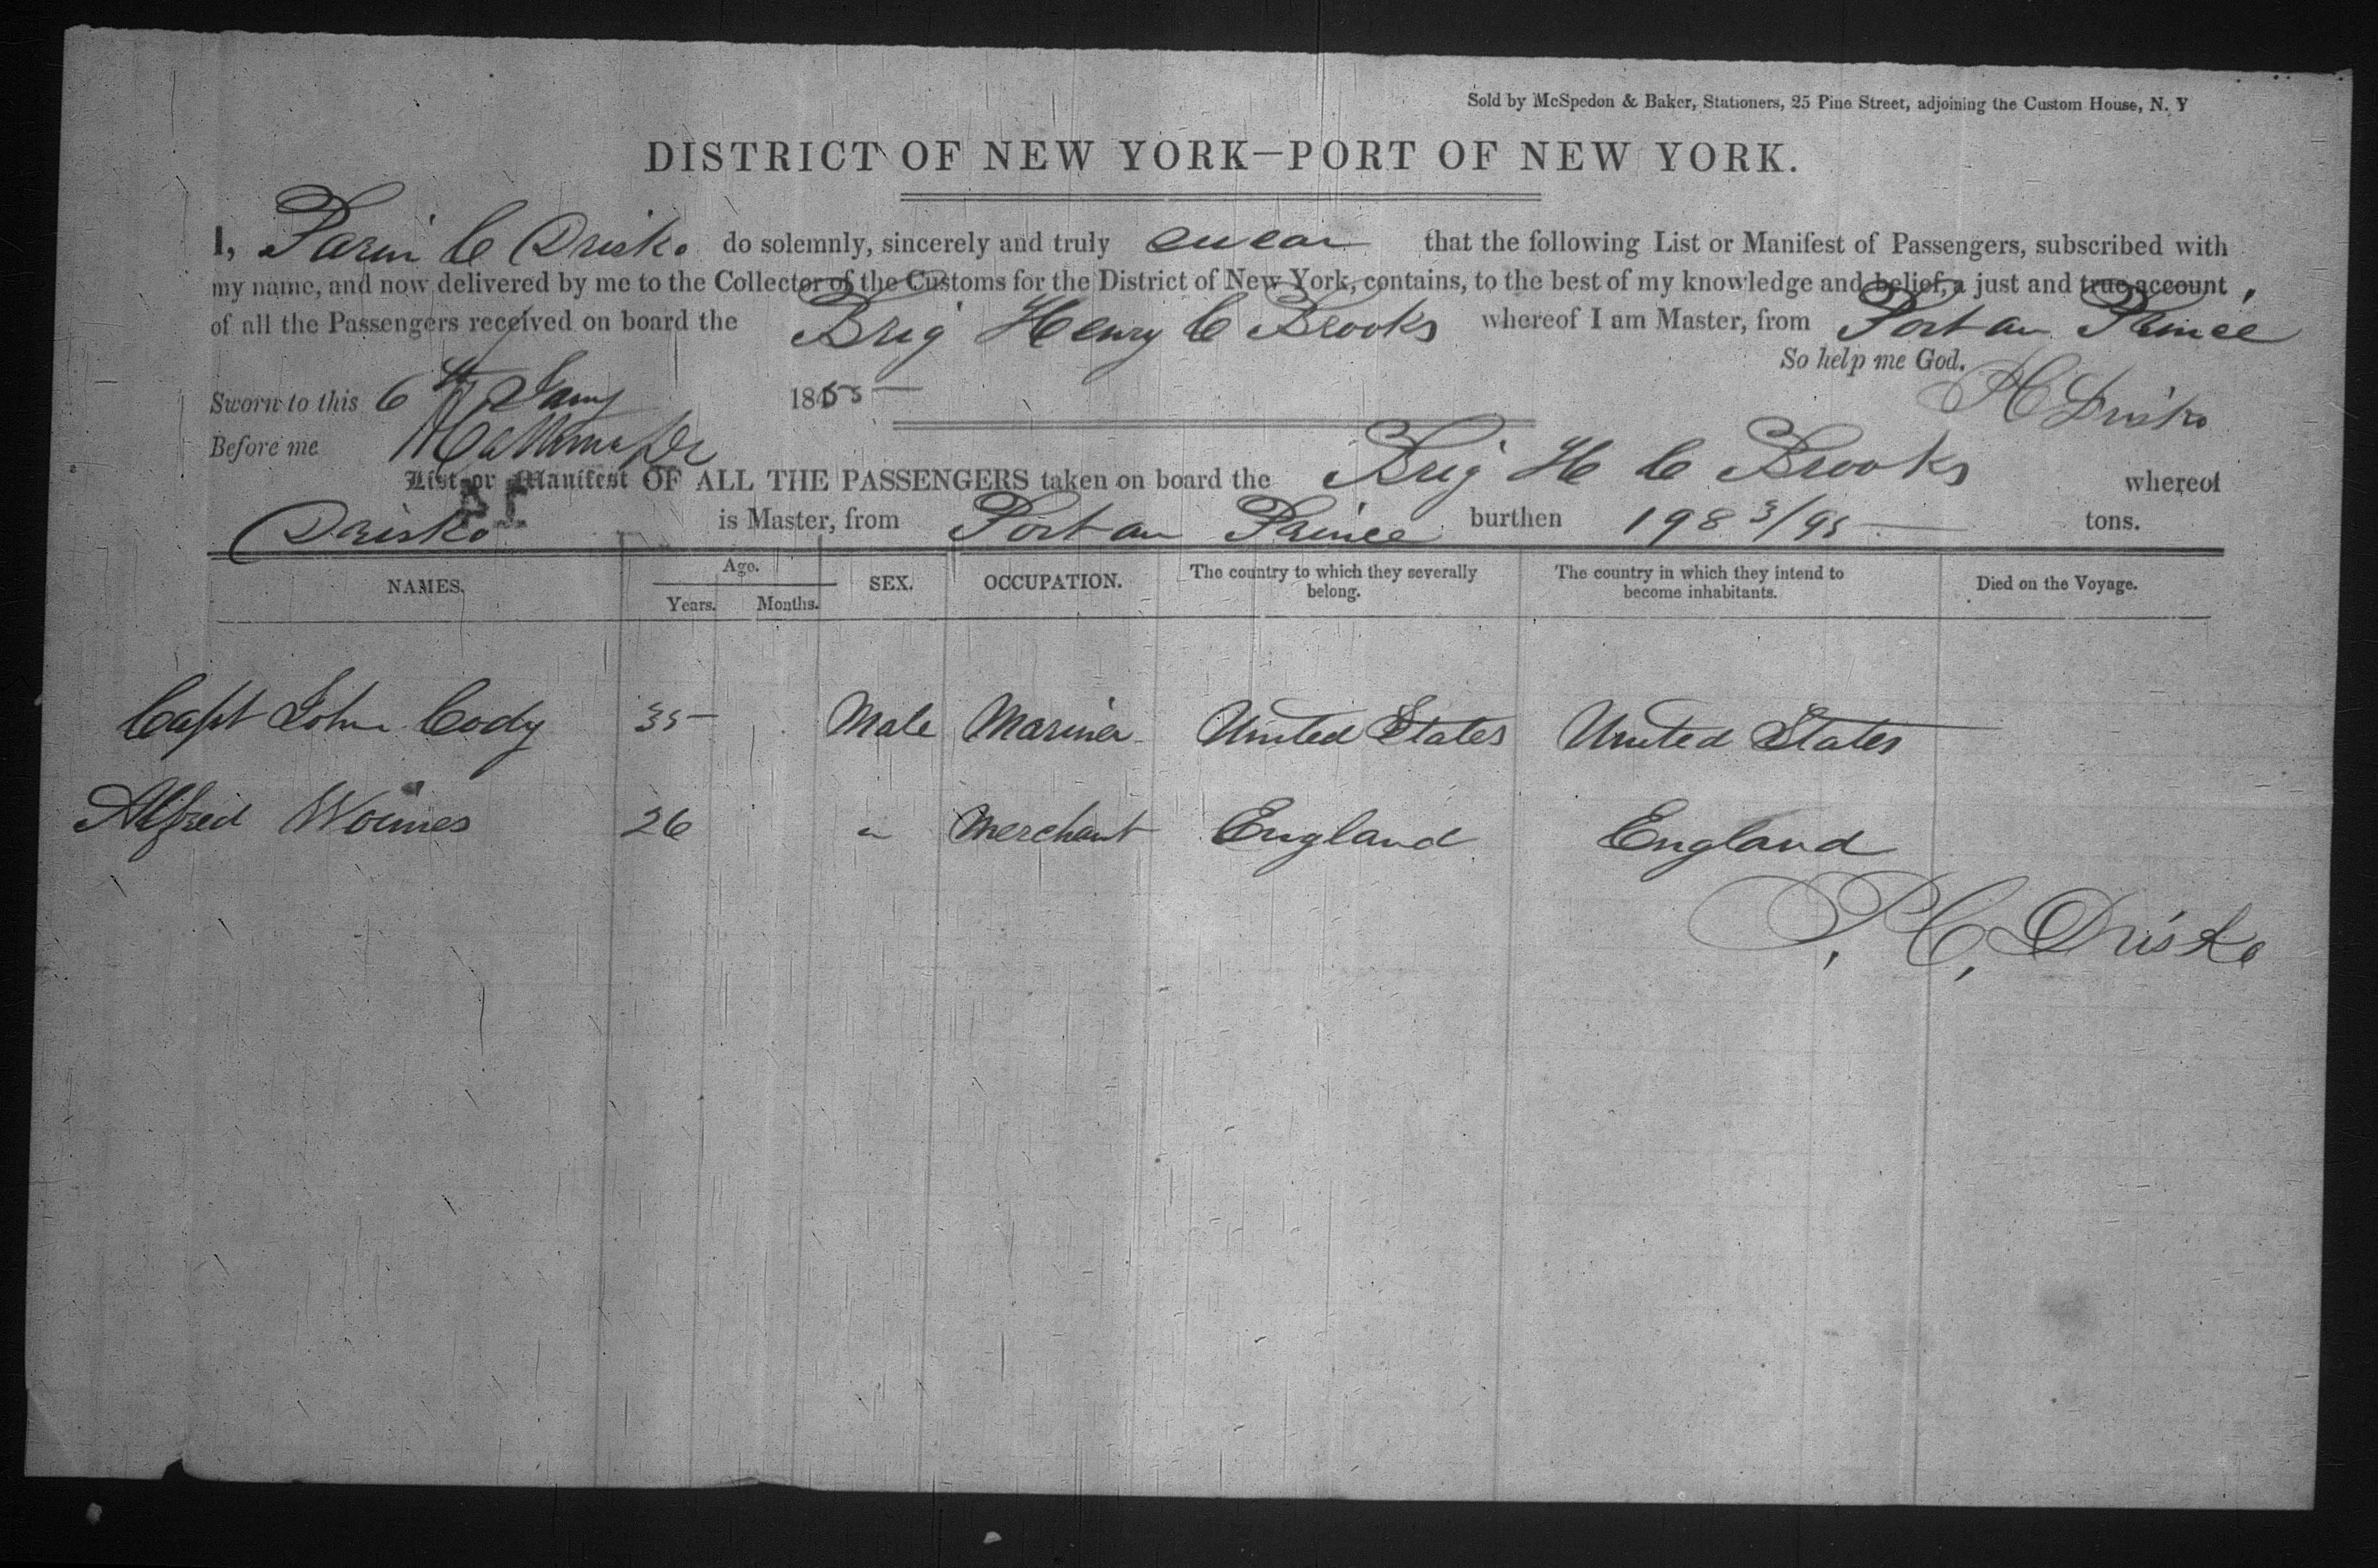 Sold by McSpedon & Baker, Stationers, 25 Pine Street, adjoining the Custom House, N. Y
DISTRICT OF NEW YORK—PORT OF NEW YORK.
I, C Drisko do solemnly, sincerely and truly swear that the following List or Manifest of Passengers, subscribed with
my name, and now delivered by me to the Collector of the Customs for the District of New York, contains, to the best of my knowledge and belief, a just and true account
of all the Passengers received on board the Brig Henry C Brooks whereof I am Master, from Port au Prince
So help me God.
Sworn to this 6th Jany 1855 P C Drisko
Before me
List or Manifest OF ALL THE PASSENGERS taken on board the Brig H C Brooks whereof
Drisko is Master, from Port au Prince burthen 198 3/95 tons.
NAMES. Age. Years. Months. SEX. OCCUPATION. The country to which they severally belong. The country in which they intend to become inhabitants. Died on the Voyage.
Capt John Cody 35 Male Mariner United States United States
Alfred 26 " Merchant England England
P. C. Drisko